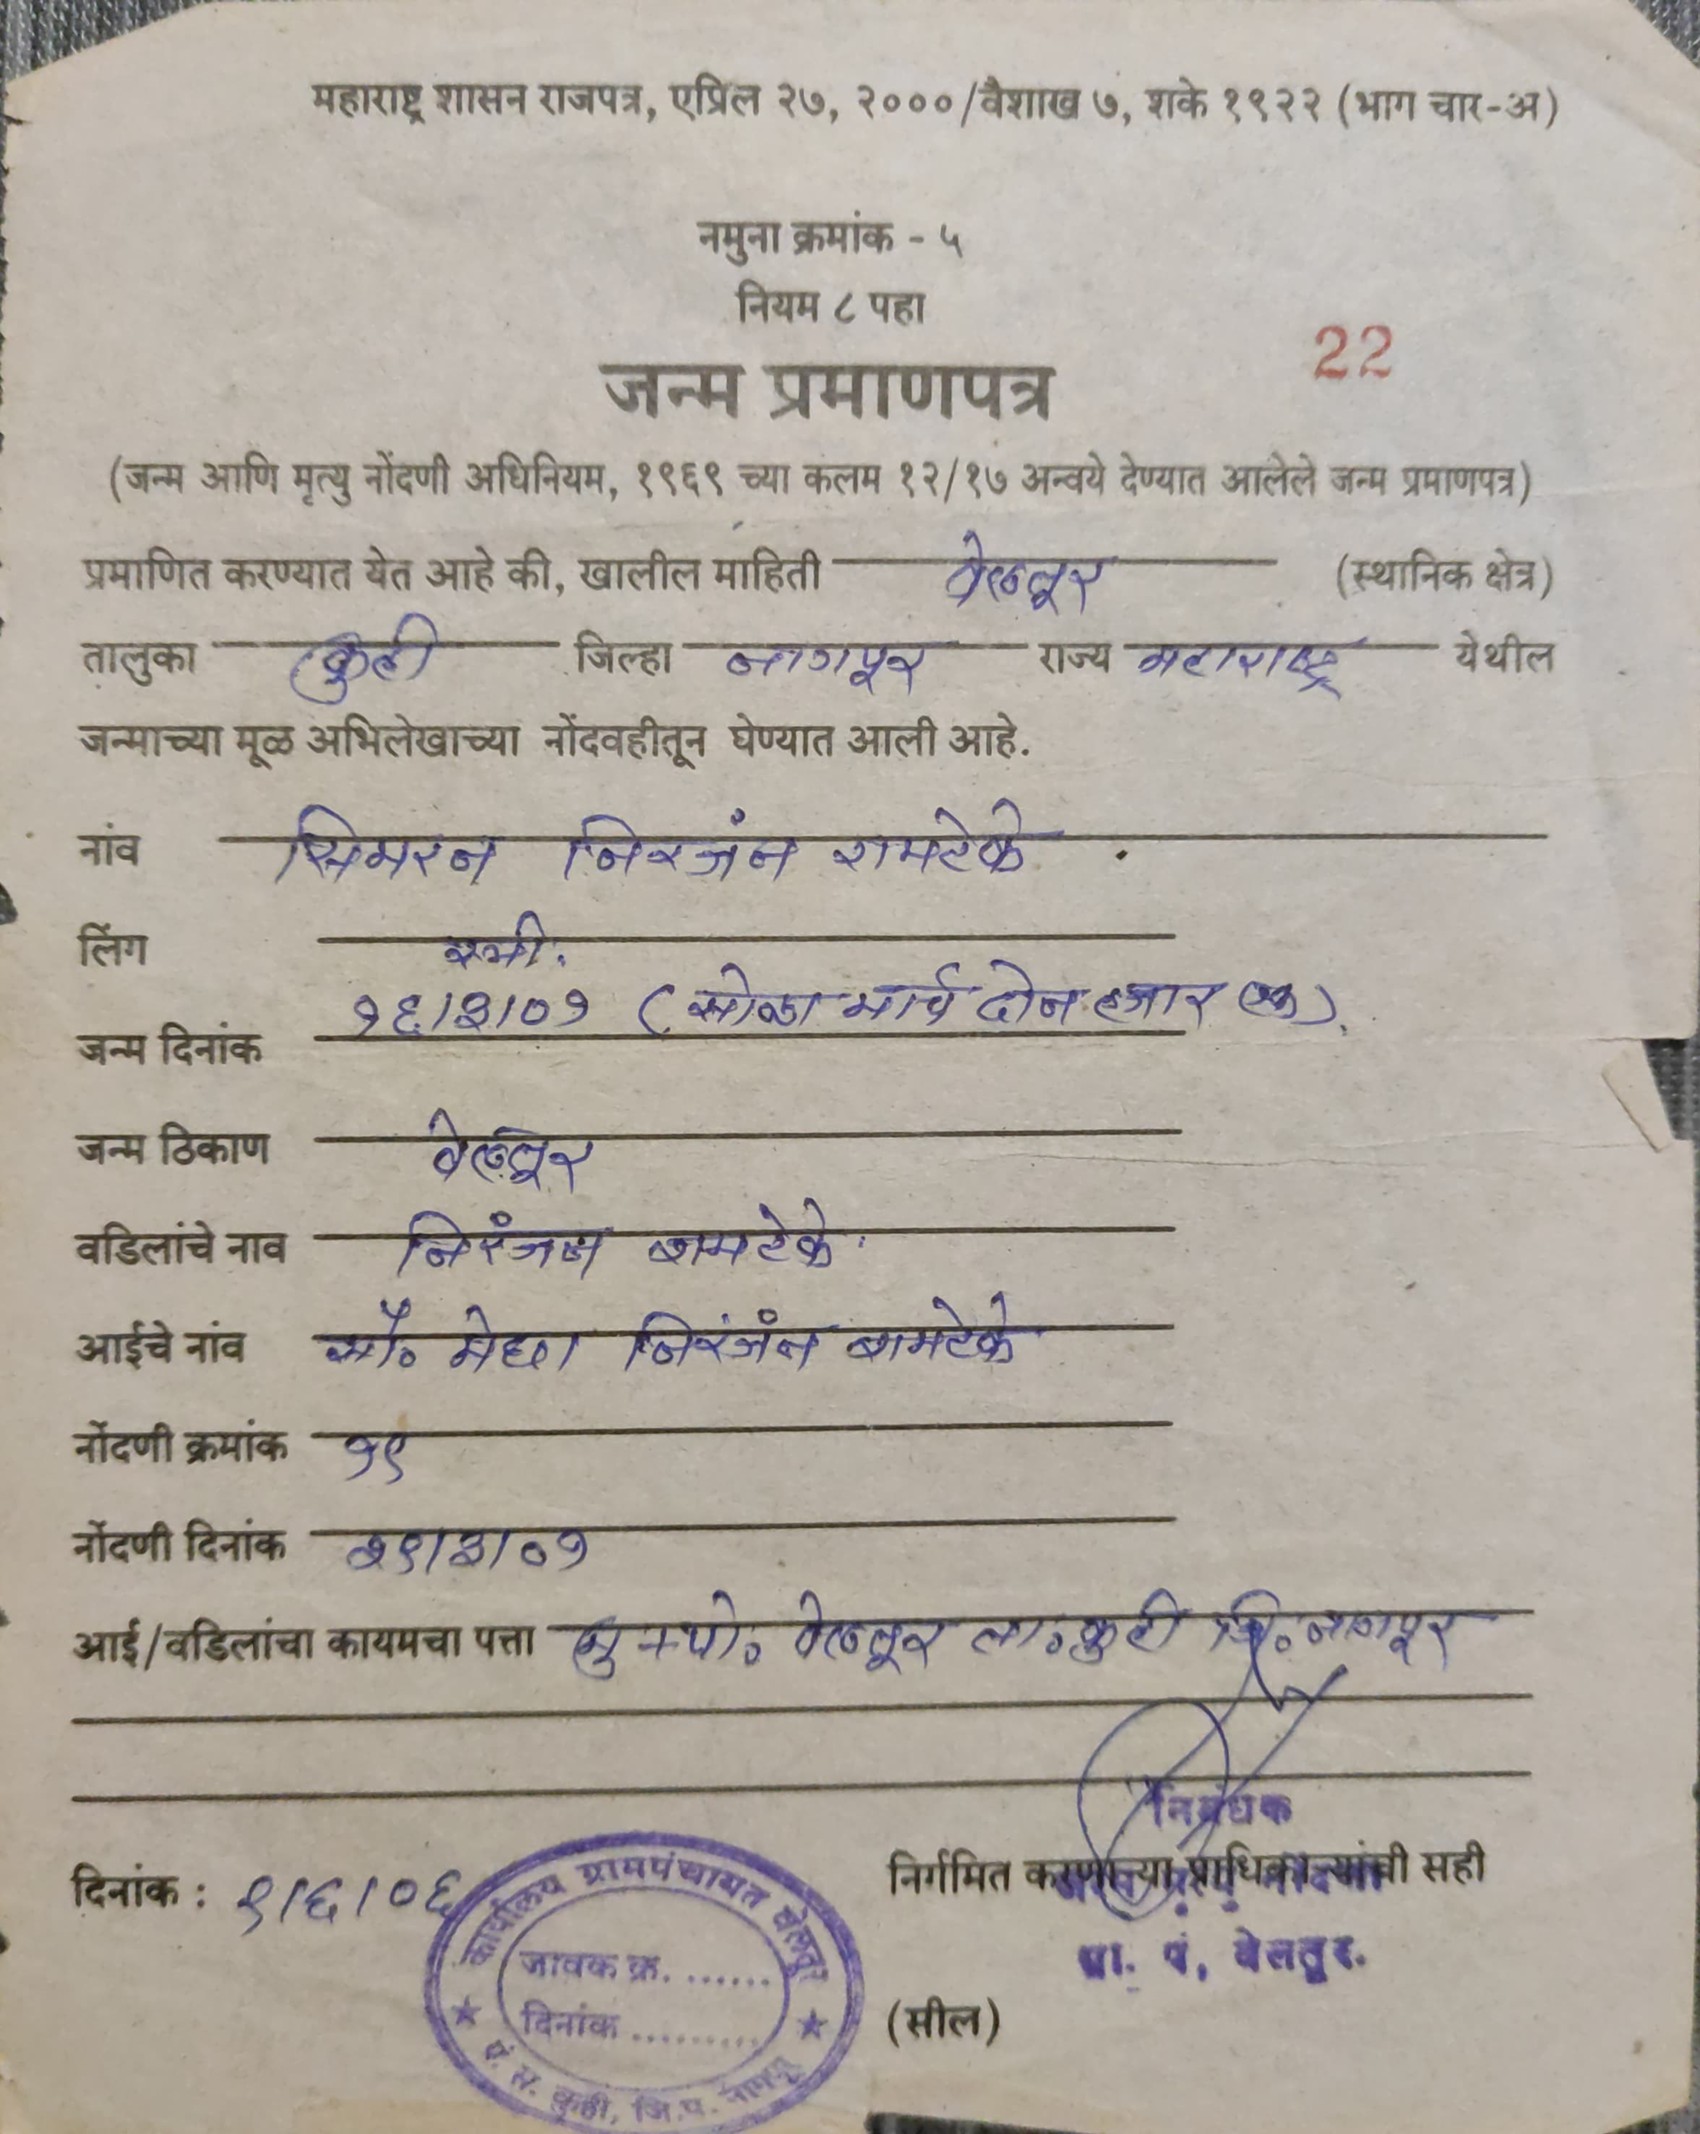 महाराष्ट्र शासन राजपत्र, एप्रिल २७, २०००/वैशाख ७, शके १९२२ (भाग चार-अ)
नमुना क्रमांक - ५
नियम ८ पहा
22
जन्म प्रमाणपत्र
(जन्म आणि मृत्यु नोंदणी अधिनियम, १९६९ च्या कलम १२/१७ अन्वये देण्यात आलेले जन्म प्रमाणपत्र)
प्रमाणित करण्यात येत आहे की, खालील माहिती वेलतूर (स्थानिक क्षेत्र)
तालुका कुही जिल्हा नागपूर राज्य महाराष्ट्र येथील
जन्माच्या मूळ अभिलेखाच्या नोंदवहीतून घेण्यात आली आहे.
नांव सिमरन निरजंन रामटेके
लिंग स्त्री.
जन्म दिनांक १६/३/०१ (सोळा मार्च दोन हजार एक).
जन्म ठिकाण वेलतूर
वडिलांचे नाव निरंजन रामटेके
आईचे नांव सौ. मेघा निरंजंन रामटेके
नोंदणी क्रमांक १९
नोंदणी दिनांक २९/३/०१
आई/वडिलांचा कायमचा पत्ता मु + पो. वेलतूर ता. कुही जि. नागपूर
निबंधक
दिनांक : ९/६/०६
निर्गमित करणाऱ्या प्राधिकाऱ्यांची सही
ग्रा. पं. वेलतूर.
(सील)
कार्यालय ग्रामपंचायत वेलतूर
जावक क्र. .......
दिनांक .........
पं. स. कुही, जि.प. नागपूर